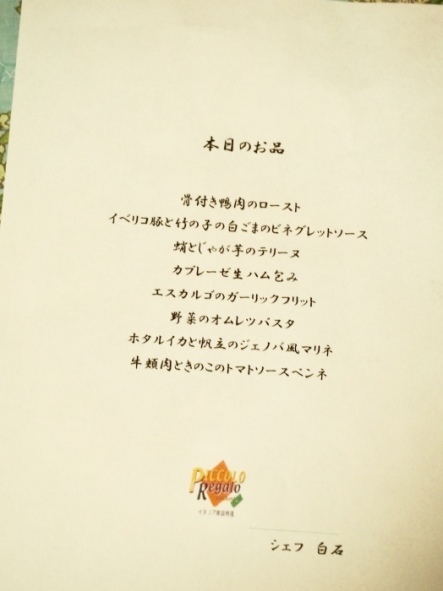 本日のお品
骨付き鴨肉のロースト
イベリコ豚と竹の子の白ごまのビネグレットソース
蛸とじゃが芋のテリーヌ
カプレーゼ生ハム包み
エスカルゴのガーリックフリット
野菜のオムレツパスタ
ホタルイカと帆立のジェノバ風マリネ
牛頬肉ときのこのトマトソースペンネ
PICCOLO
Regalo
シェフ 白石